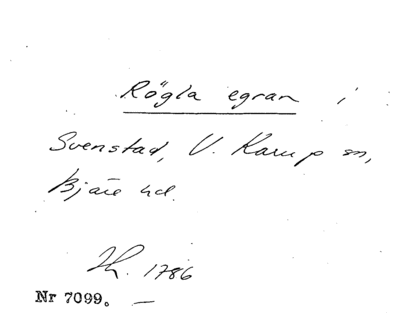 Rögla egran i
Svenstad, V. Karup sn,
Bjäre hd.
Th. 1786
Nr 7099. —